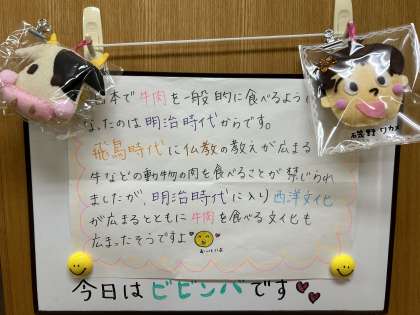 日本で牛肉を一般的に食べるように
なったのは明治時代からです。
飛鳥時代に仏教の教えが広まる
牛などの動物の肉を食べることが禁じられ
ましたが、明治時代に入り西洋文化
が広まるとともに牛肉を食べる文化も
広まったそうですよ
おいしいよ
今日はビビンバです
磯野ワカメ